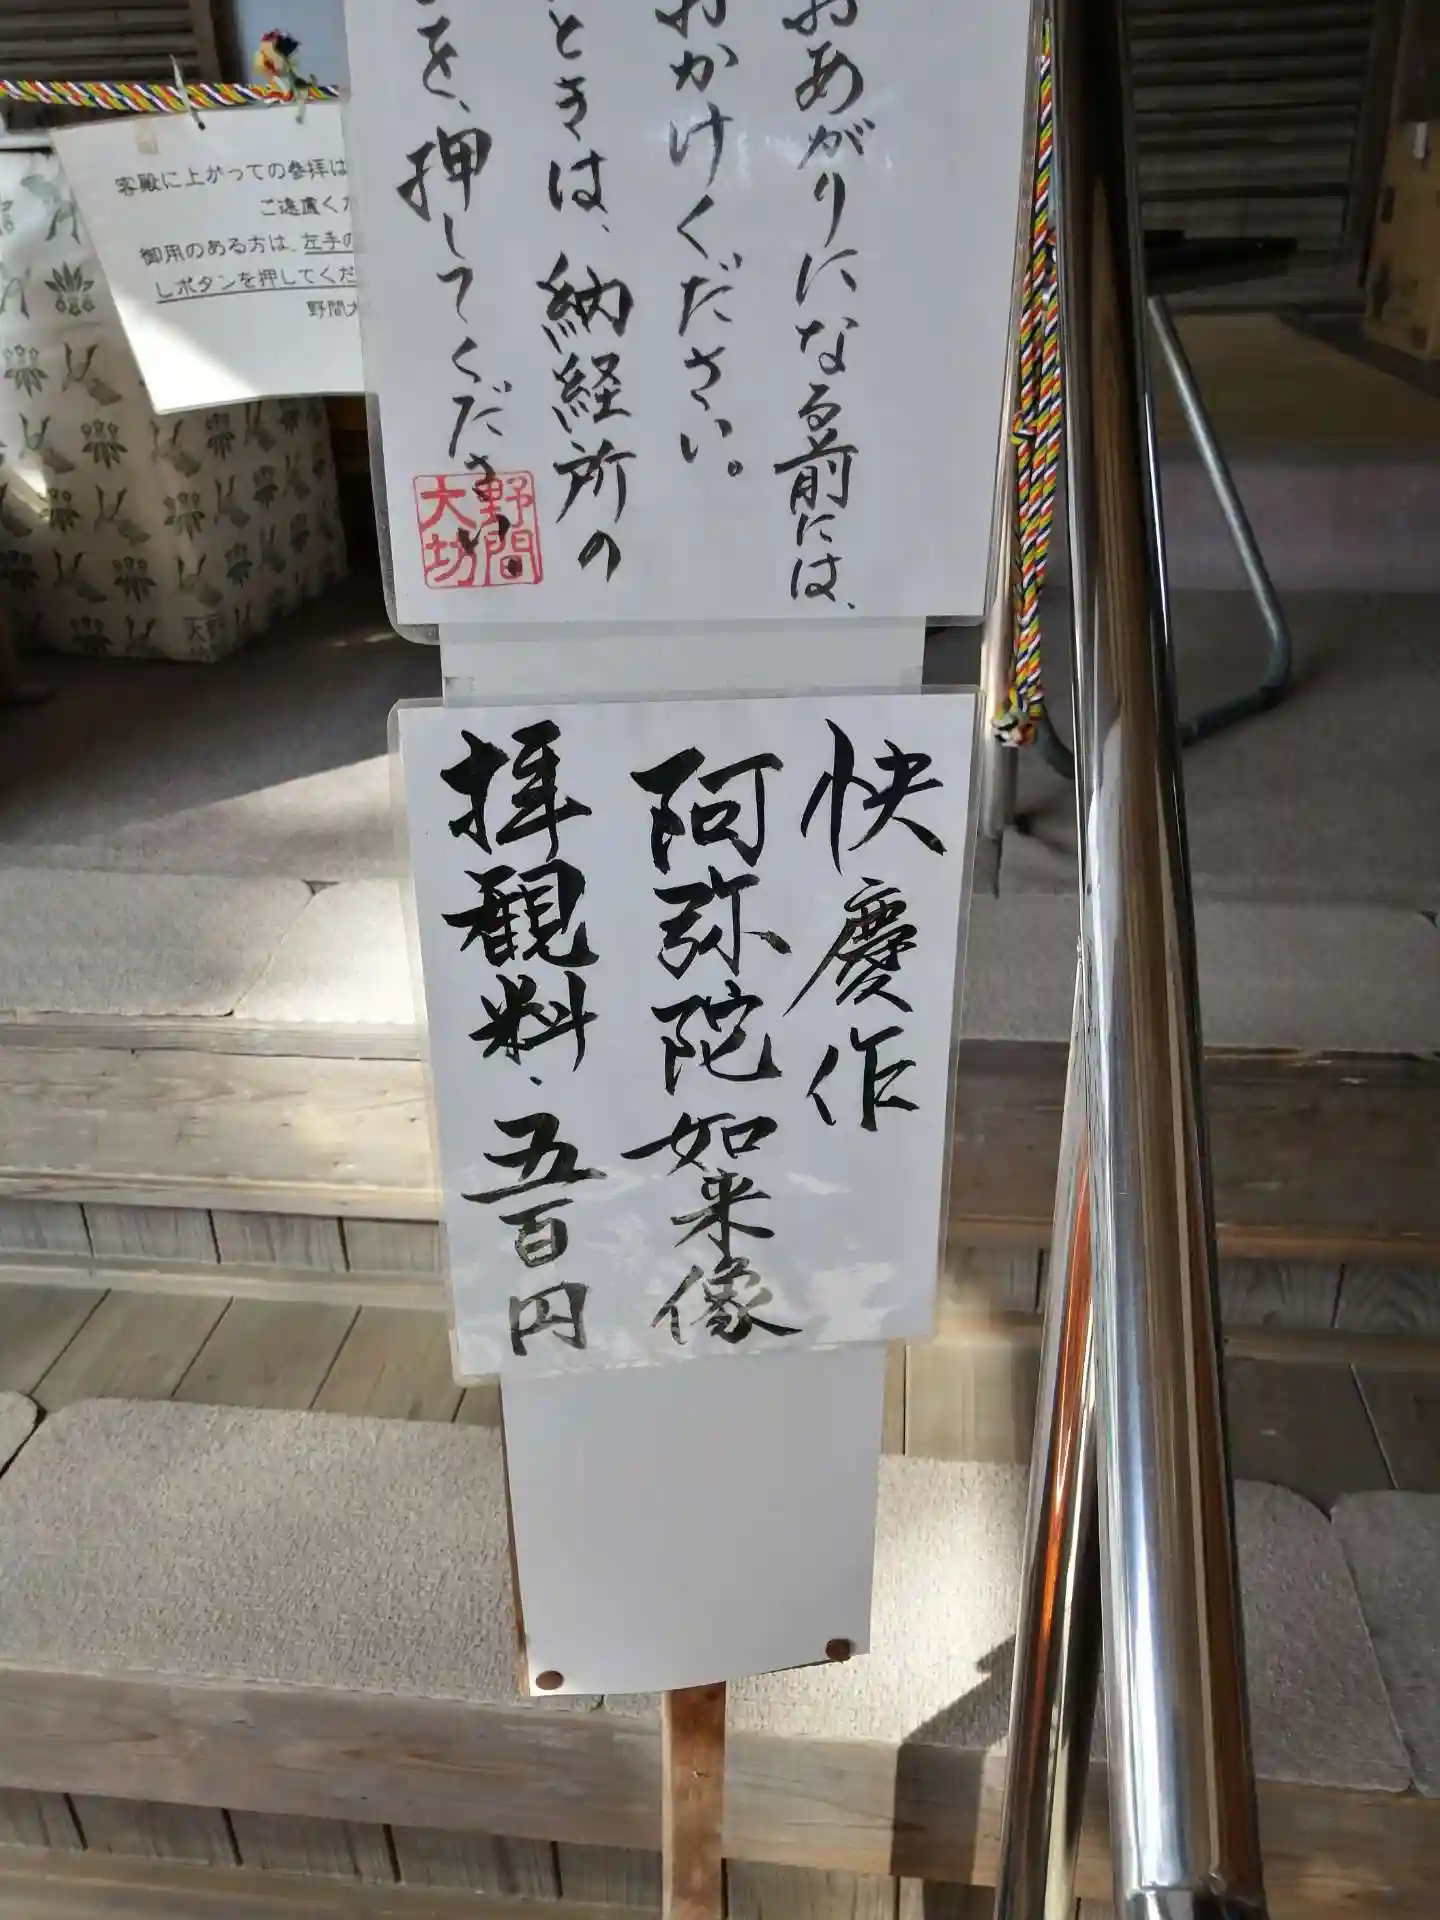 おあがりになる前には、
おかけください。
ときは、納経所の
を、押してください。
野間
大坊
快慶作
阿弥陀如来像
拝観料、五百円
客殿に上がっての参拝は
ご遠慮く
御用のある方は、左手の
しボタンを押してくだ
野間大